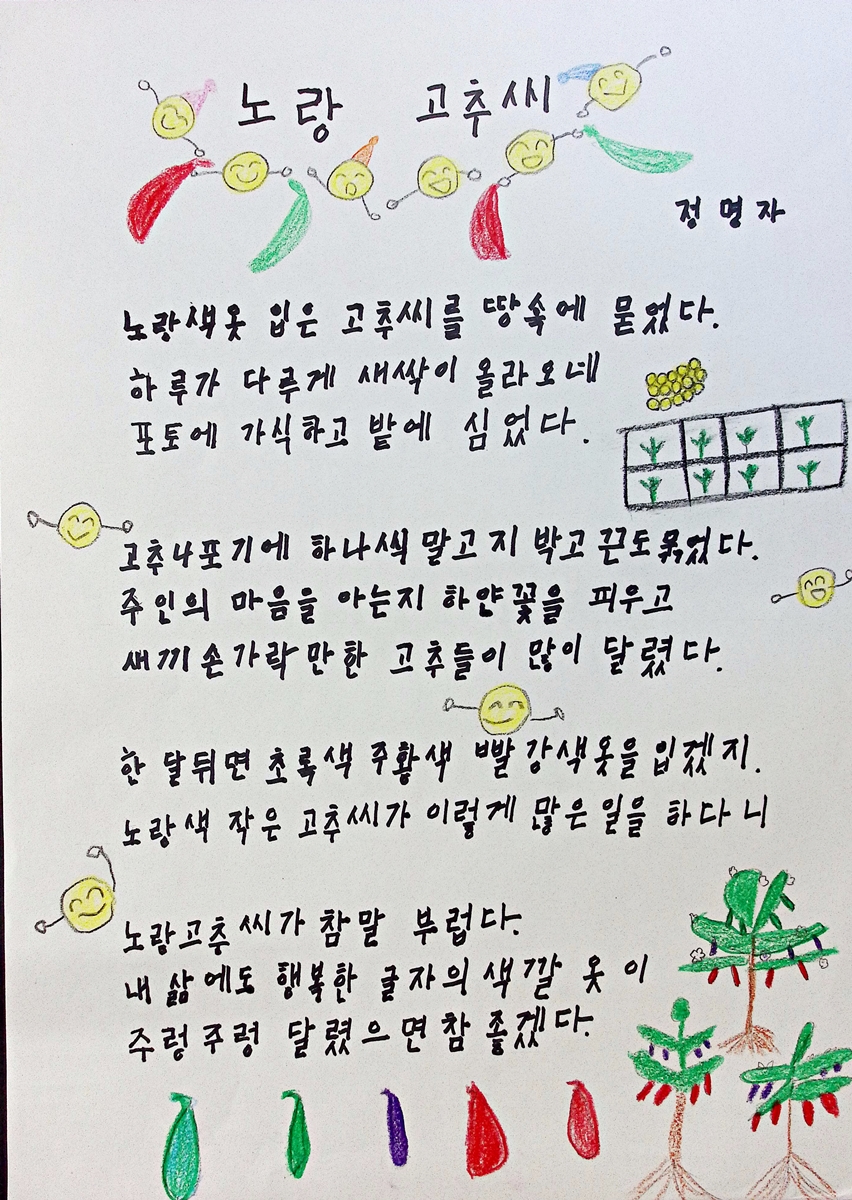 노랑 고추씨
정명자
노랑색옷 입은 고추씨를 땅속에 묻었다.
하루가 다루게 새싹이 올라오네
포토에 가식하고 밭에 심었다.
고추4포기에 하나씩 말고지 박고 끈도묶었다.
주인의 마음을 아는지 하얀꽃을 피우고
새끼손가락만한 고추들이 많이 달렸다.
한 달뒤면 초록색 주황색 빨강색옷을입겠지.
노랑색 작은 고추씨가 이렇게 많은 일을 하다니
노랑고추씨가 참말 부럽다.
내 삶에도 행복한 글자의 색깔 옷이
주렁주렁 달렸으면참 좋겠다.